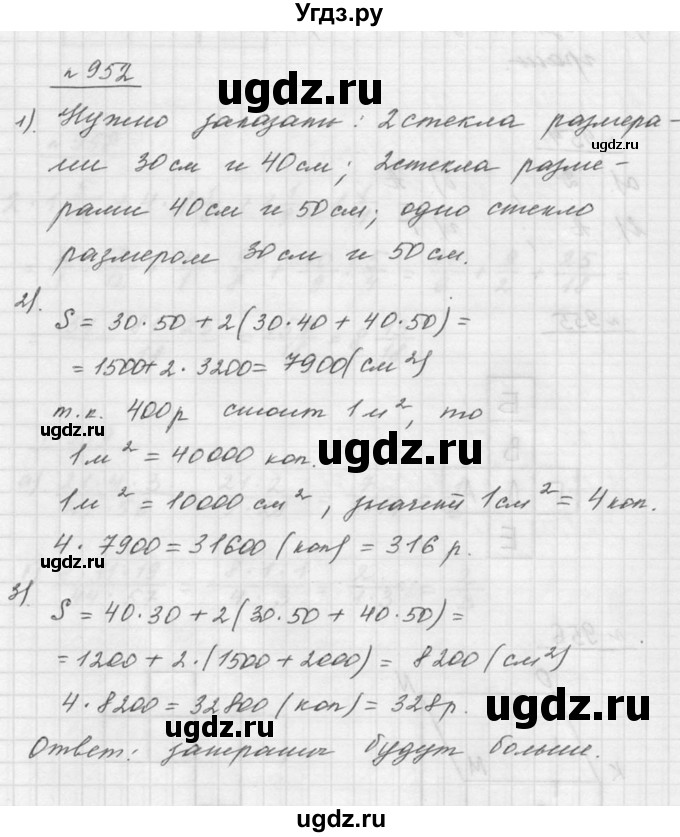 Угдз.ру
№ 952
ugdz.ru
1). Нужно заказать: 2 стекла размера-
ми 30 см и 40 см; 2 стекла разме-
рами 40 см и 50 см; одно стекло
размером 30 см и 50 см.
ugdz.ru
2).
S = 30·50 + 2(30·40 + 40·50) =
= 1500 + 2·3200 = 7900 (см²)
т.к. 400 р стоит 1 м², то
ugdz.ru
1 м² = 40000 коп.
ugdz.ru
1 м² = 10000 см², значит 1 см² = 4 коп.
4·7900 = 31600 (коп) = 316 р.
ugdz.ru
3).
S = 40·30 + 2(30·50 + 40·50) =
= 1200 + 2·(1500 + 2000) = 8200 (см²)
4·8200 = 32800 (коп) = 328 р.
ugdz.ru
ugdz.ru
Ответ: затраты будут больше.
ugdz.ru
ugdz.ru
Угдз.ру